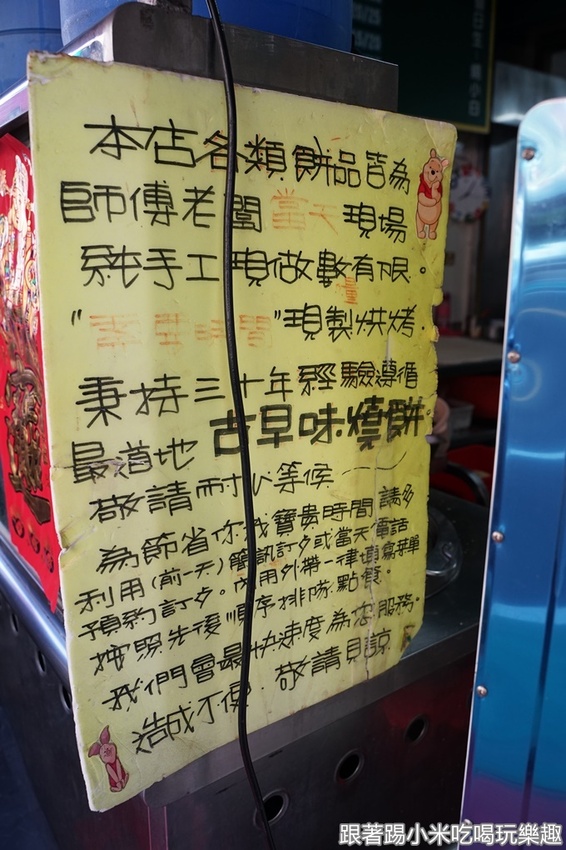 本店各類餅品皆為
師傅老闆當天現場
純手工現做數有限。
量
"需要時間"現製烘烤.
秉持三十年經驗遵循
最道地古早味燒餅.
敬請耐心等候
為節省你我寶貴時間請多
利用(前一天)簡訊訂夕或當天電話
預約訂夕。內用外帶一律填寫菜單
按照先後順序排隊點餐。
我們會最快速度為您服務。
造成不便.敬請見諒
跟著踢小米吃喝玩樂趣